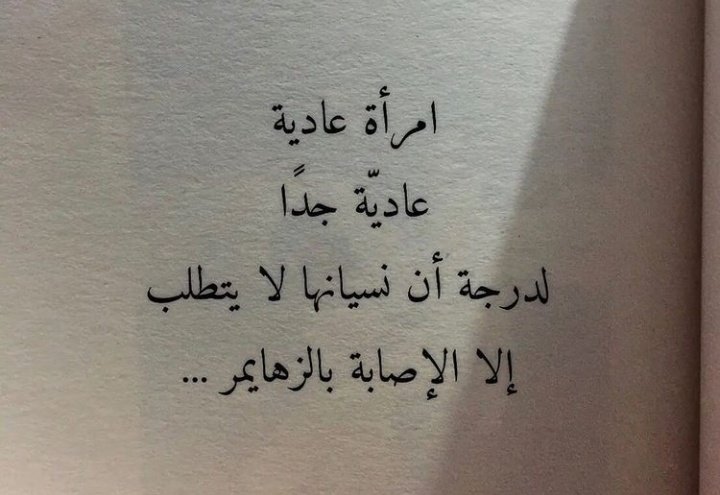 امرأة عادية
عاديّة جدًا
لدرجة أن نسيانها لا يتطلب
إلا الإصابة بالزهايمر ...